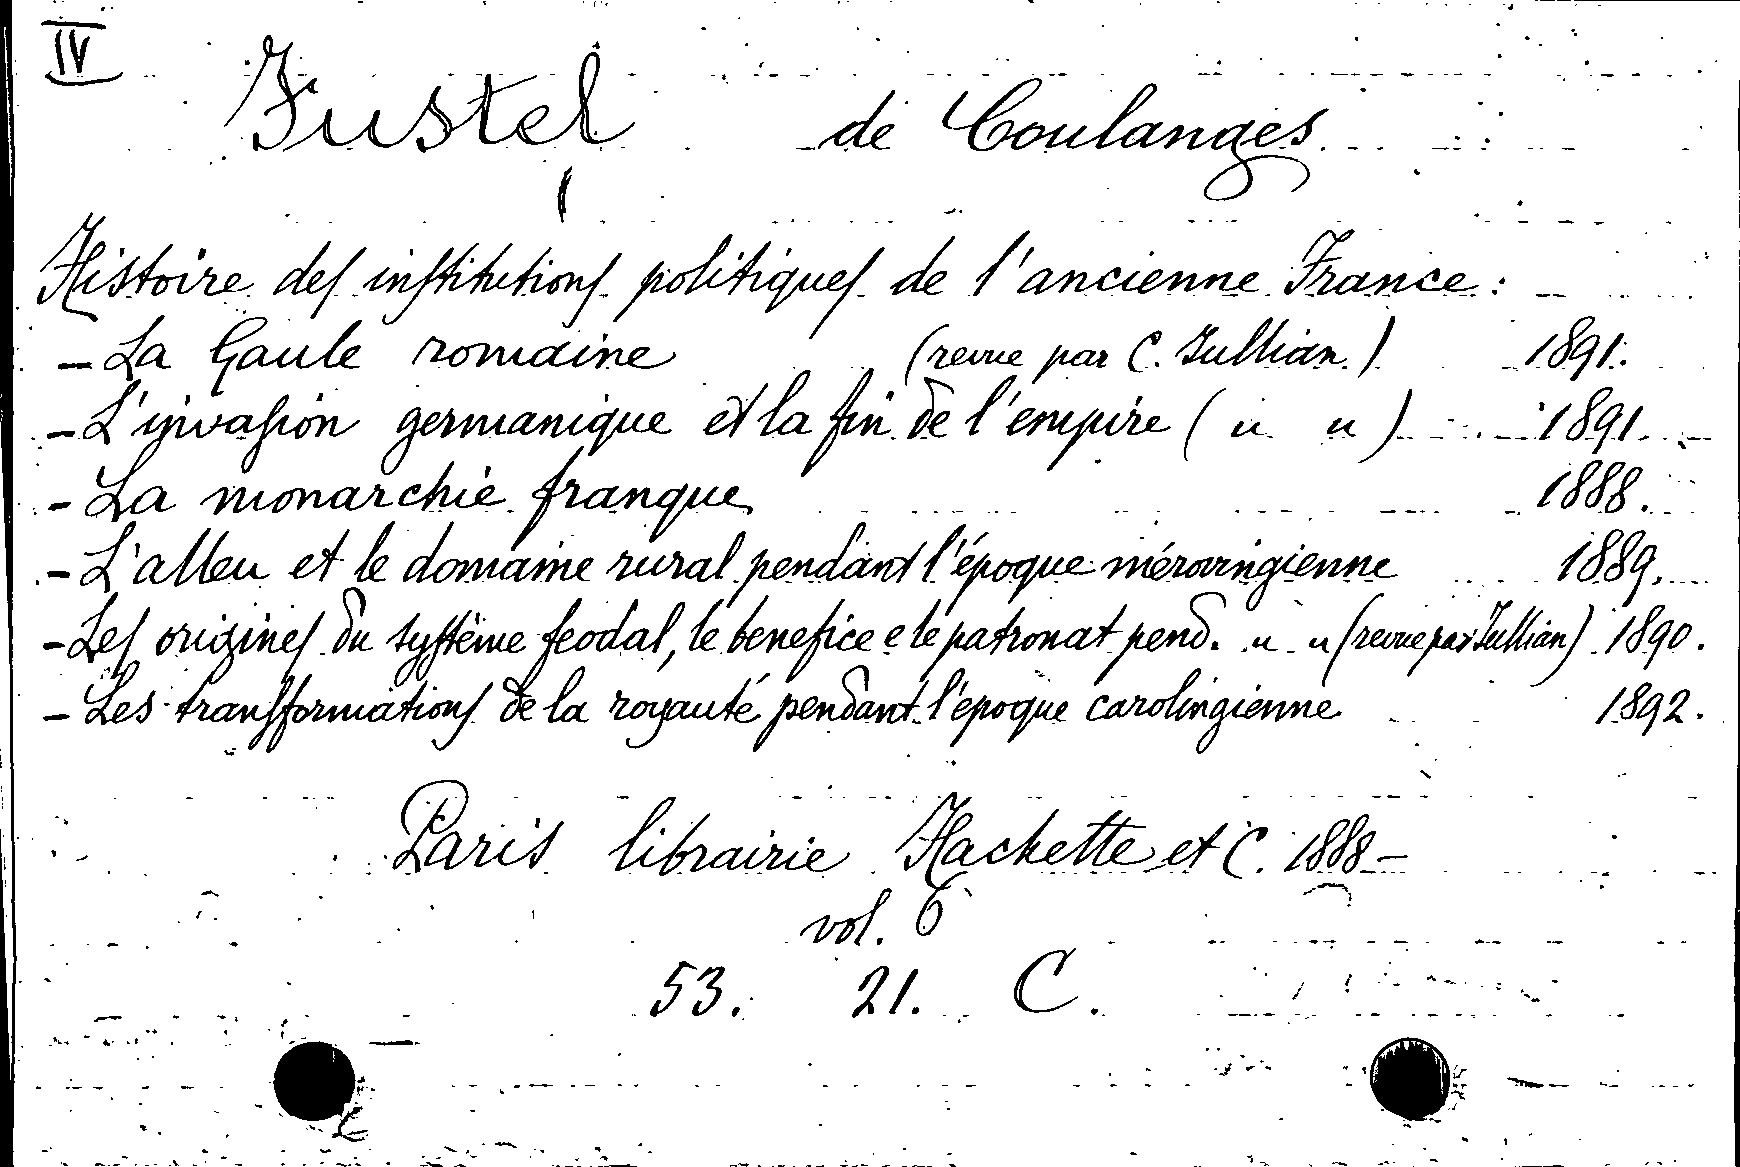 IV
Fustel de Coulanges
Histoire des institutions politiques de l'ancienne France :
- La Gaule romaine (revue par C. Jullian) 1891.
- L'invasion germanique et la fin de l'empire ( " " ) 1891.
- La monarchie franque 1888.
- L'alleu et le domaine rural pendant l'époque mérovingienne 1889.
- Les origines du système feodal, le benefice e le patronat pend. " " (revue par Jullian) 1890.
- Les transformations de la royauté pendant l'époque carolingienne 1892.
Paris librairie Hachette et C. 1888-
vol. 6
53. 21. C.